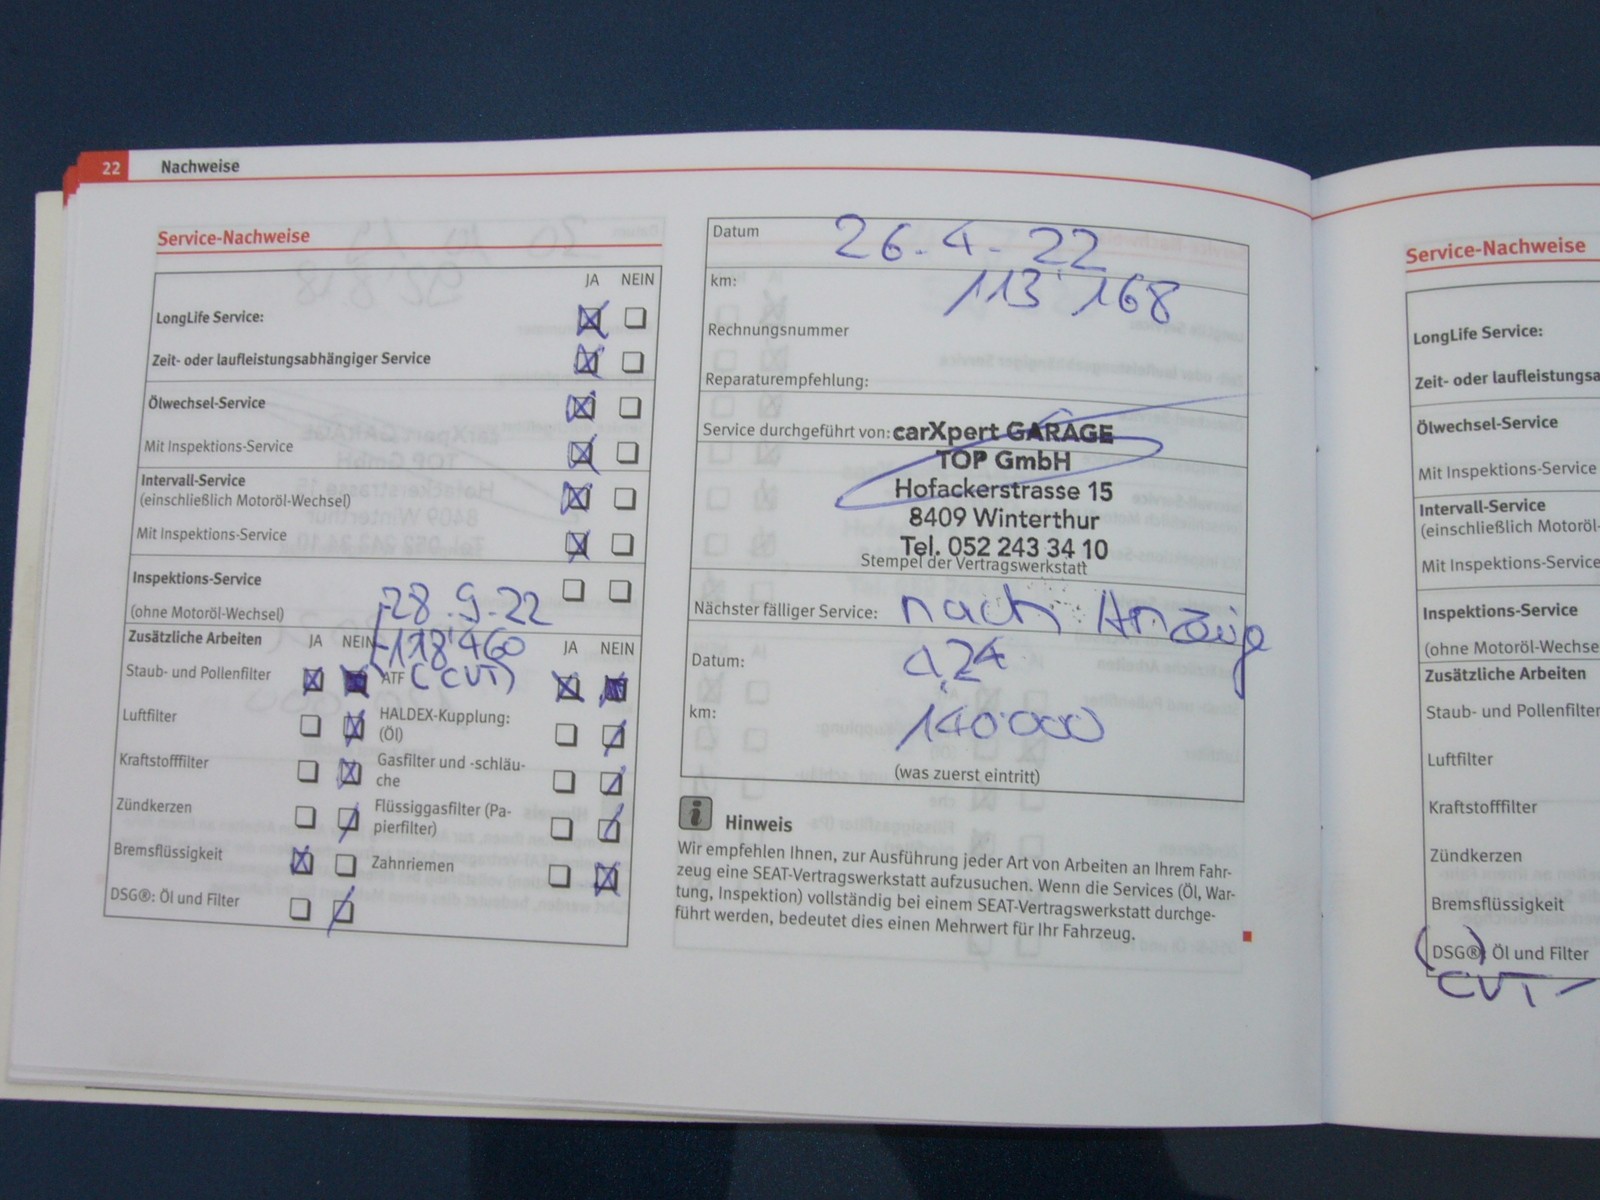 22 Nachweise
Service-Nachweise
JA NEIN
LongLife Service:
Zeit- oder laufleistungsabhängiger Service
Ölwechsel-Service
Mit Inspektions-Service
Intervall-Service
(einschließlich Motoröl-Wechsel)
Mit Inspektions-Service
Inspektions-Service
(ohne Motoröl-Wechsel)
28.9.22
118'460
Zusätzliche Arbeiten JA NEIN JA NEIN
Staub- und Pollenfilter ATF (CVT)
Luftfilter HALDEX-Kupplung:
(Öl)
Kraftstofffilter Gasfilter und -schläu-
che
Zündkerzen Flüssiggasfilter (Pa-
pierfilter)
Bremsflüssigkeit Zahnriemen
DSG®: Öl und Filter
Datum 26.4.22
km: 113'168
Rechnungsnummer
Reparaturempfehlung:
Service durchgeführt von: carXpert GARAGE
TOP GmbH
Hofackerstrasse 15
8409 Winterthur
Tel. 052 243 34 10
Stempel der Vertragswerkstatt
Nächster fälliger Service: nach Anzeige
Datum: 4.24
km: 140'000
(was zuerst eintritt)
i Hinweis
Wir empfehlen Ihnen, zur Ausführung jeder Art von Arbeiten an Ihrem Fahr-
zeug eine SEAT-Vertragswerkstatt aufzusuchen. Wenn die Services (Öl, War-
tung, Inspektion) vollständig bei einem SEAT-Vertragswerkstatt durchge-
führt werden, bedeutet dies einen Mehrwert für Ihr Fahrzeug.
Service-Nachweise
LongLife Service:
Zeit- oder laufleistungsa
Ölwechsel-Service
Mit Inspektions-Service
Intervall-Service
(einschließlich Motoröl-
Mit Inspektions-Service
Inspektions-Service
(ohne Motoröl-Wechse
Zusätzliche Arbeiten
Staub- und Pollenfilter
Luftfilter
Kraftstofffilter
Zündkerzen
Bremsflüssigkeit
(DSG®) Öl und Filter
CVT